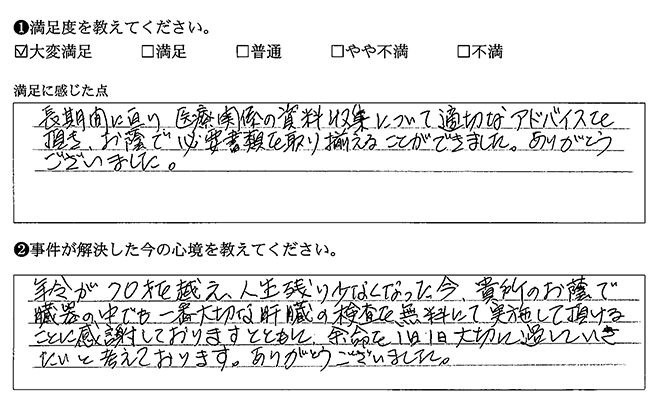 ❶満足度を教えてください。
☑大変満足 ☐満足 ☐普通 ☐やや不満 ☐不満
満足に感じた点
長期間に亘り 医療関係の資料収集について適切なアドバイスを
頂き、お蔭で必要書類を取り揃えることができました。ありがとう
ございました。
❷事件が解決した今の心境を教えてください。
年令が70才を越え、人生残り少なくなった今、貴所のお蔭で
臓器の中でも一番大切な肝臓の検査を無料にて実施して頂ける
ことに感謝しておりますとともに、余命を1日1日大切に過していき
たいと考えております。ありがとうございました。